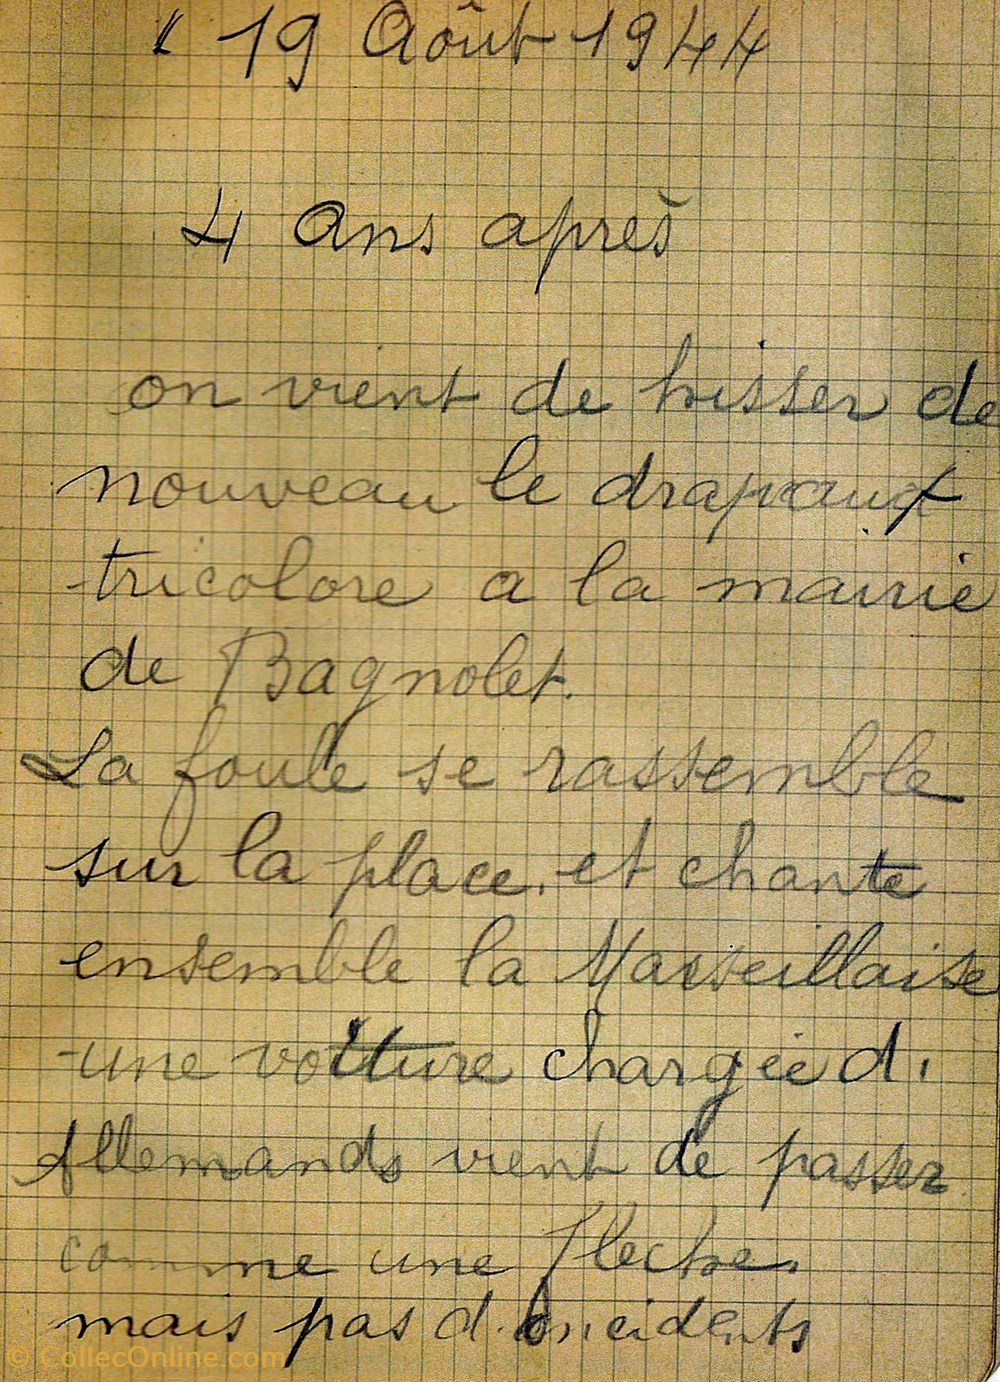 19 Août 1944
4 Ans après
on vient de hisser de
nouveau le drapeaux
tricolore a la mairie
de Bagnolet.
La foule se rassemble
sur la place. et chante
ensemble la Marseillaise
une voiture chargée d.
Allemands vient de passer
comme une fleche.
mais pas d. incidents
© CollecOnline.com